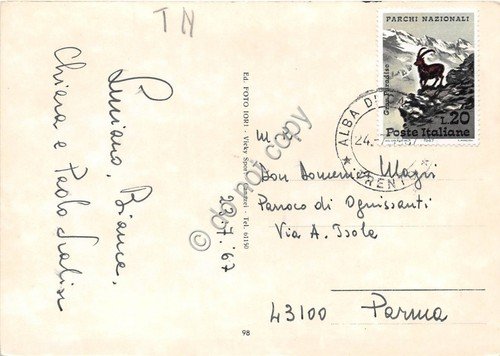 TN
Luciano, Bianca,
Chiara e Paolo
23.7.'67
Ed. FOTO IORI - Vicky Sport - - Tel. 61150
98
PARCHI NAZIONALI
Gran Paradiso
L.20
Poste Italiane
ALBA DI
24.-7.-1967
TRENTO
do not copy
Don Domenico Magri
Parroco di Ognissanti
Via A. Isola
43100 Parma